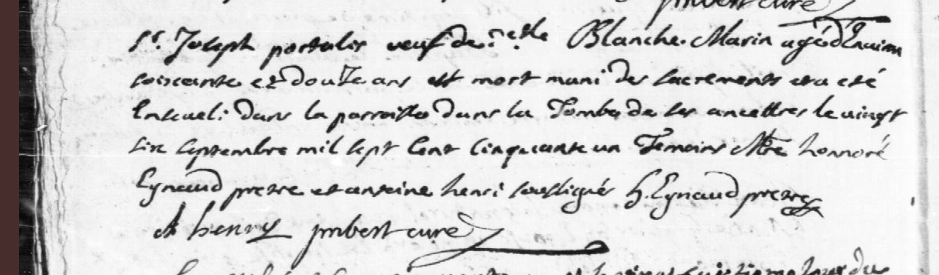 imbert curé
Sr. Joseph portalis veuf de d.elle Blanche Marin agé d'Environ
soissante et douze ans est mort muni des sacrements et a eté
Enseveli dans la parroisse dans la Tombe de ses ancettres le vingt
six septembre mil sept cent cinquante un Temoins Mre honnoré
Eynaud pretre et antoine henri soussignés h. Eynaud pretre
A henry imbert curé